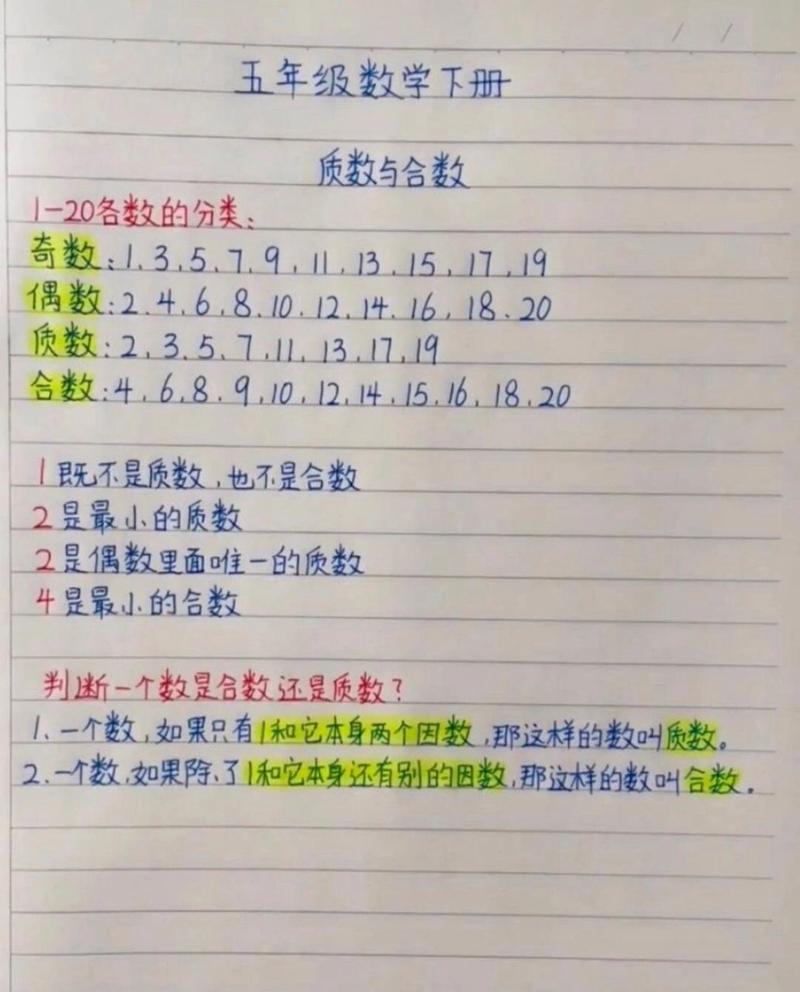 五年级数学下册
质数与合数
1-20各数的分类:
奇数:1、3、5、7、9、11、13、15、17、19
偶数:2、4、6、8、10、12、14、16、18、20
质数:2、3、5、7、11、13、17、19
合数:4、6、8、9、10、12、14、15、16、18、20
1既不是质数,也不是合数
2是最小的质数
2是偶数里面唯一的质数
4是最小的合数
判断一个数是合数还是质数?
1、一个数,如果只有1和它本身两个因数,那这样的数叫质数。
2、一个数,如果除了1和它本身还有别的因数,那这样的数叫合数。